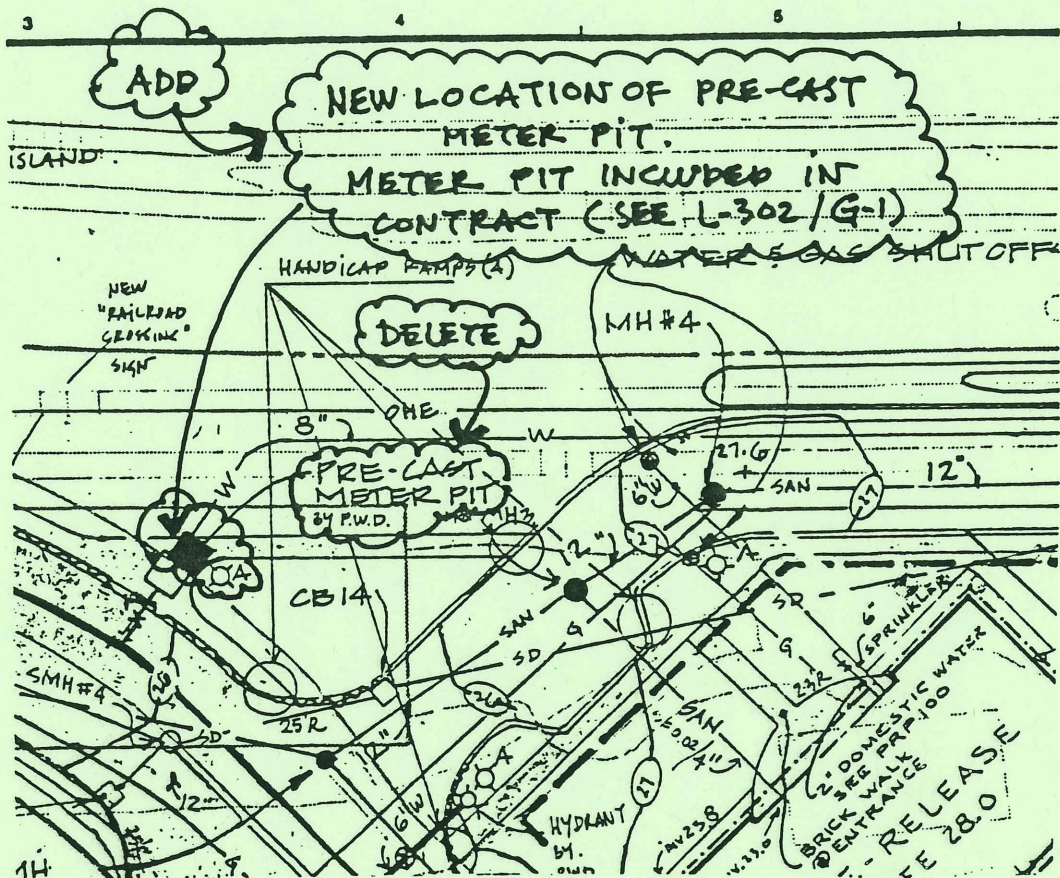 3
4
5
ADD
NEW LOCATION OF PRE-CAST
METER PIT.
METER PIT INCLUDED IN
CONTRACT (SEE L-302/G-1)
ISLAND.
WATER & GAS SHUTOFF
HANDICAP RAMPS (4)
NEW
"RAILROAD
CROSSING"
SIGN
DELETE
MH#4
OHE
8"
W
W
PRE-CAST
METER PIT
BY P.W.D.
27.6
+
SAN
12"
27
6"W
MH3
2"
27
A
A
CB14
SAN
G
SD
SD
6"
SPRINKLER
G
23R
SMH#4
26
26
25R
SD
SAN
4"
2" DOMESTIC WATER
SEE PRP-100
BRICK WALK
@ ENTRANCE
RELEASE
28.0
A
12"
1"
6"W
27
HYDRANT
BY
G